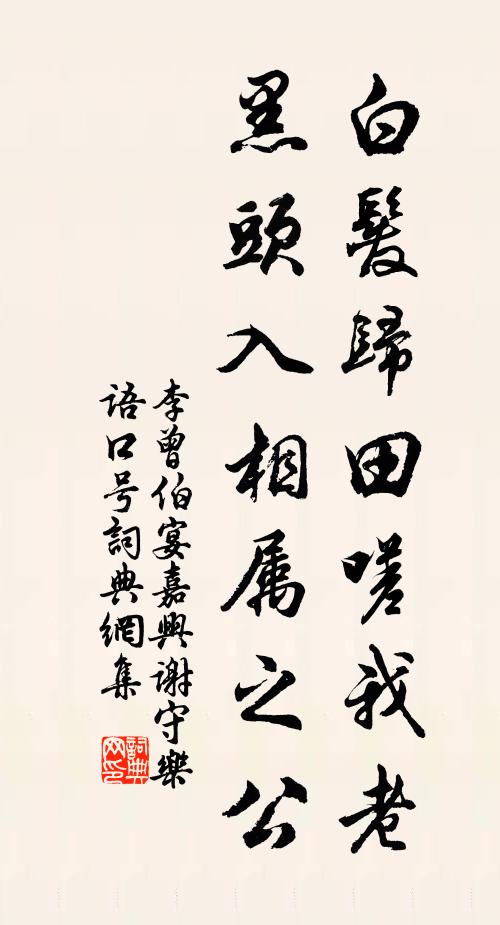 白髮歸田嗟我老
黑頭入相属之公
李曾伯宴嘉興谢守樂
语口号詞典網集
詞典
网印